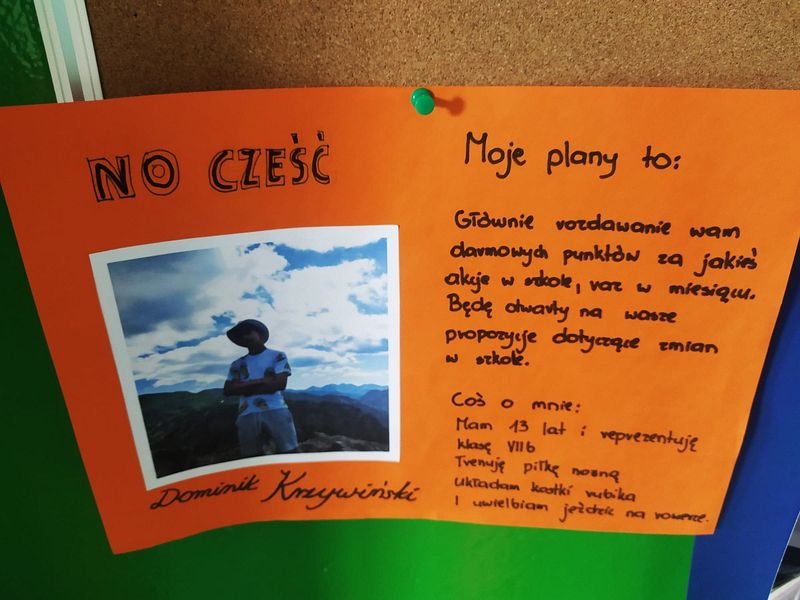 NO CZEŚĆ
Dominik Krzywiński
Moje plany to:
Głównie rozdawanie wam
darmowych punktów za jakieś
akcje w szkole, raz w miesiącu.
Będę otwarty na wasze
propozycje dotyczące zmian
w szkole.
Coś o mnie:
Mam 13 lat i reprezentuję
klasę VIIb
Trenuję piłkę nożną
układam kostki rubika
I uwielbiam jeździć na rowerze.